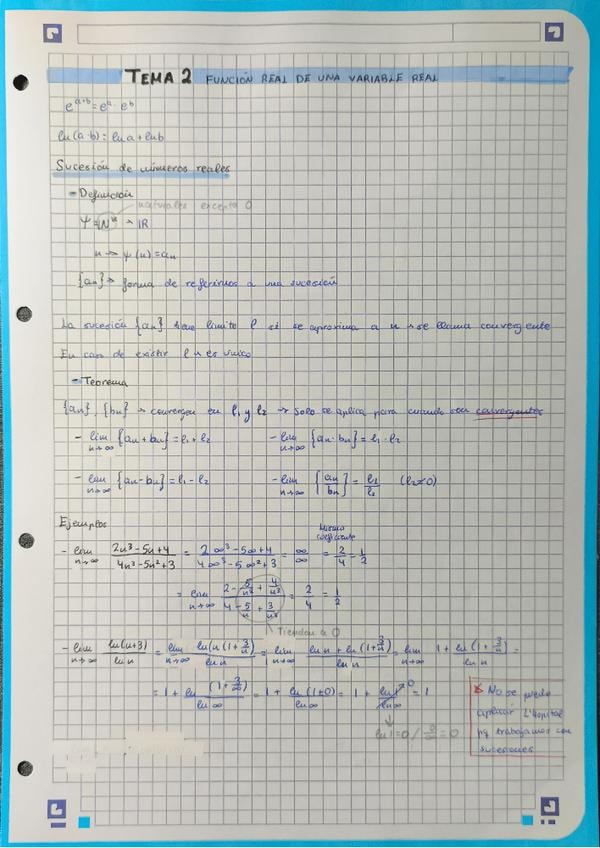 TEMA 2 FUNCIÓN REAL DE UNA VARIABLE REAL
e^{a+b} = e^a · e^b
ln(a·b) = ln a + ln b
Sucesión de números reales
- Definición
naturales excepto 0
Ψ = N* → IR
n → Ψ(n) = an
{an} → forma de referirnos a una sucesión
La sucesión {an} tiene límite l si se aproxima a n → se llama convergente
En caso de existir l → es único
- Teorema
{an}, {bn} → convergen en l1 y l2 → Solo se aplica para cuando son convergentes
- lim n→∞ {an + bn} = l1 + l2 - lim n→∞ {an · bn} = l1 · l2
- lim n→∞ {an - bn} = l1 - l2 - lim n→∞ {an/bn} = l1/l2 (l2 ≠ 0)
Ejemplos
Mismo coeficiente
- lim n→∞ (2n³ - 5n + 4)/(4n³ - 5n² + 3) = (2∞³ - 5∞ + 4)/(4∞³ - 5∞² + 3) = ∞/∞ = 2/4 = 1/2
= lim n→∞ (2 - 5/n² + 4/n³)/(4 - 5/n + 3/n³) = 2/4 = 1/2
Tienden a 0
- lim n→∞ ln(n+3)/ln n = lim n→∞ ln(n(1+3/n))/ln n = lim n→∞ (ln n + ln(1+3/n))/ln n = lim n→∞ 1 + ln(1+3/n) =
= 1 + ln (1+3/∞)/ln ∞ = 1 + ln(1+0)/ln ∞ = 1 + ln 1/ln ∞ 0 = 1
ln 1 = 0 / 0/∞ = 0
* No se puede
aplicar L'Hopital
pq trabajamos con
sucesiones